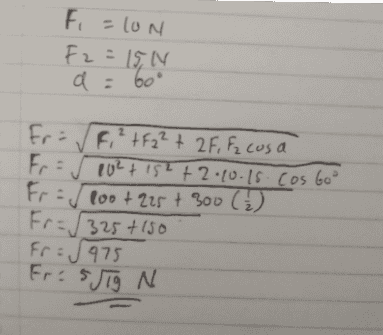 F₁ = 10 N
F₂ = 15 N
α = 60°
Fr = √(F₁² + F₂² + 2F₁F₂ cos α)
Fr = √(10² + 15² + 2·10·15· Cos 60°)
Fr = √(100 + 225 + 300 (1/2))
Fr = √(325 + 150)
Fr = √975
Fr = 5√19 N